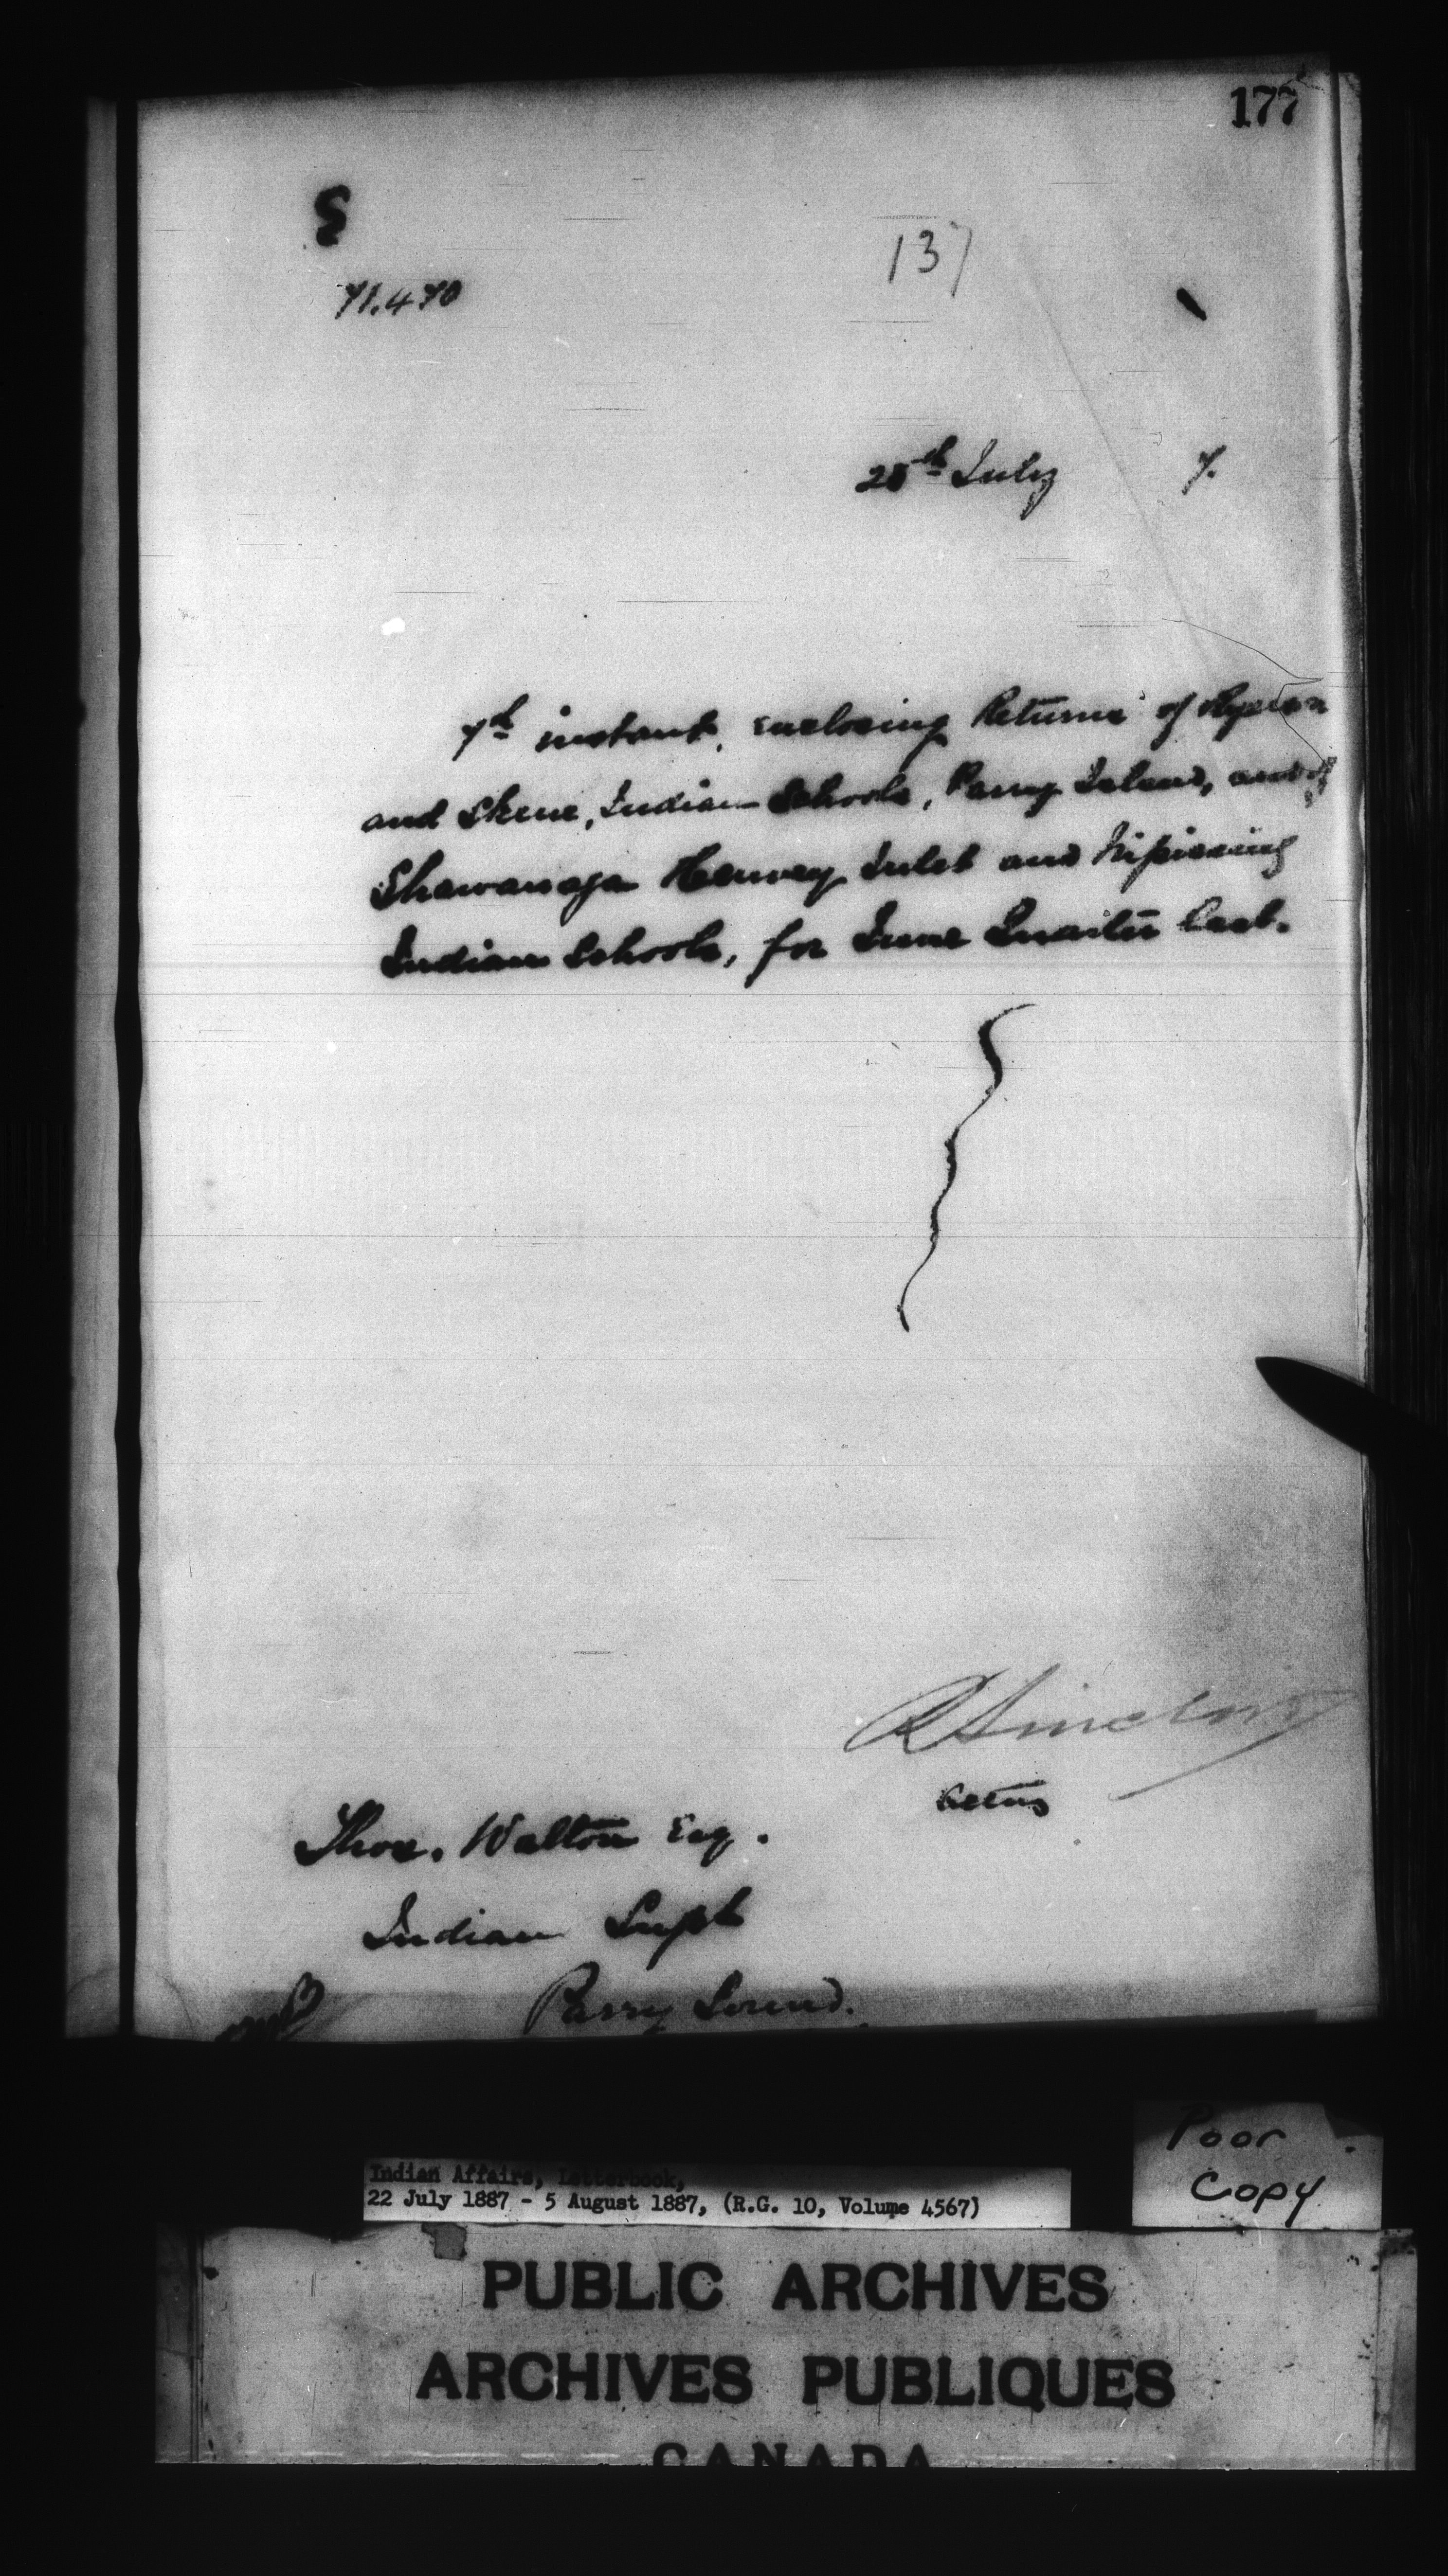 177
S
137
71.470
28th July 7.
7th instant, enclosing Returns of Ryerson
and Skene, Indian Schools, Parry Island, and of
Shawanaga Henvey Inlet and Nipissing
Indian Schools, for June Quarter last.
R Sinclair
Acting
Thos. Walton Esq.
Indian Supt
Parry Sound.
Poor
Copy
Indian Affairs, Letterbook,
22 July 1887 - 5 August 1887, (R.G. 10, Volume 4567)
PUBLIC ARCHIVES
ARCHIVES PUBLIQUES
CANADA